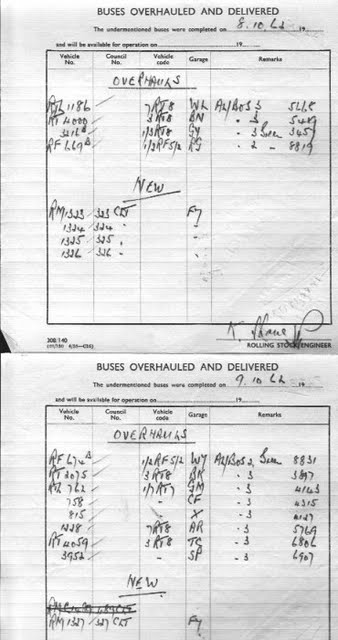 BUSES OVERHAULED AND DELIVERED
The undermentioned buses were completed on 8.10.62 19
and will be available for operation on 19
Vehicle No. Council No. Vehicle code Garage Remarks
OVERHAULS
RTL 1186 7RT8 WL AL/BOS 3
RT 4000 3RT8 BN " 3
3216 1/3RT8 GY " 3 Green 3459
RF 669 1/2RF5/2 RG " 2 " 8819
NEW
RM 1323 323 CLT Fy
1324 324 "
1325 325 "
1326 326 "
308/140
ROLLING STOCK ENGINEER
BUSES OVERHAULED AND DELIVERED
The undermentioned buses were completed on 9.10.62 19
and will be available for operation on 19
Vehicle No. Council No. Vehicle code Garage Remarks
OVERHAULS
RF 674 1/2RF5/2 WY AL/BOS 2 Green 8831
RT 2075 3RT8 BK " 3 3897
762 1/7RT7 GM " 3 4143
758 " CF " 3 4315
815 " X " 3 4127
1228 7RT8 AR " 3 5769
RT 4059 3RT8 TC " 3 6806
3952 " SP " 3 6907
NEW
RM 1327 327 CLT Fy